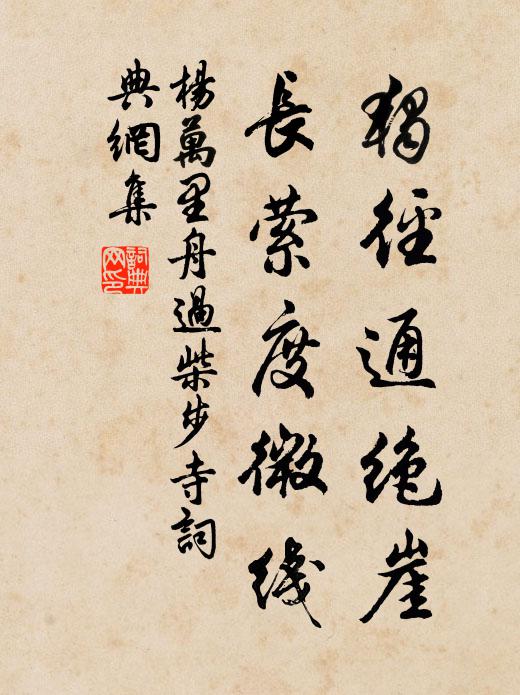 獨徑通絶崖
長縈度微綫
楊萬里舟過柴步寺詞
典網集
詞典
网印